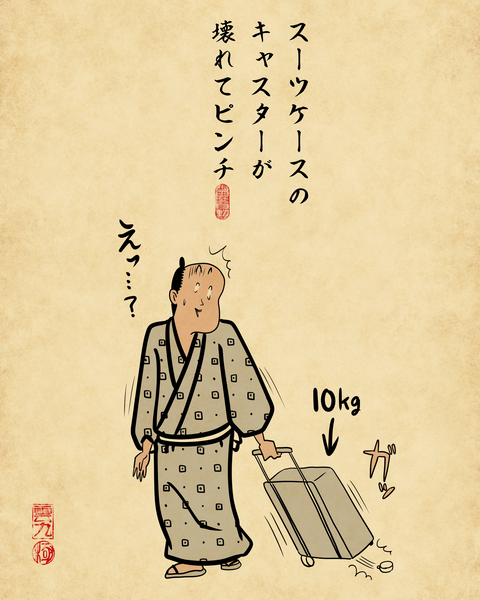 スーツケースの
キャスターが
壊れてピンチ
えっ…?
10kg
ガッ